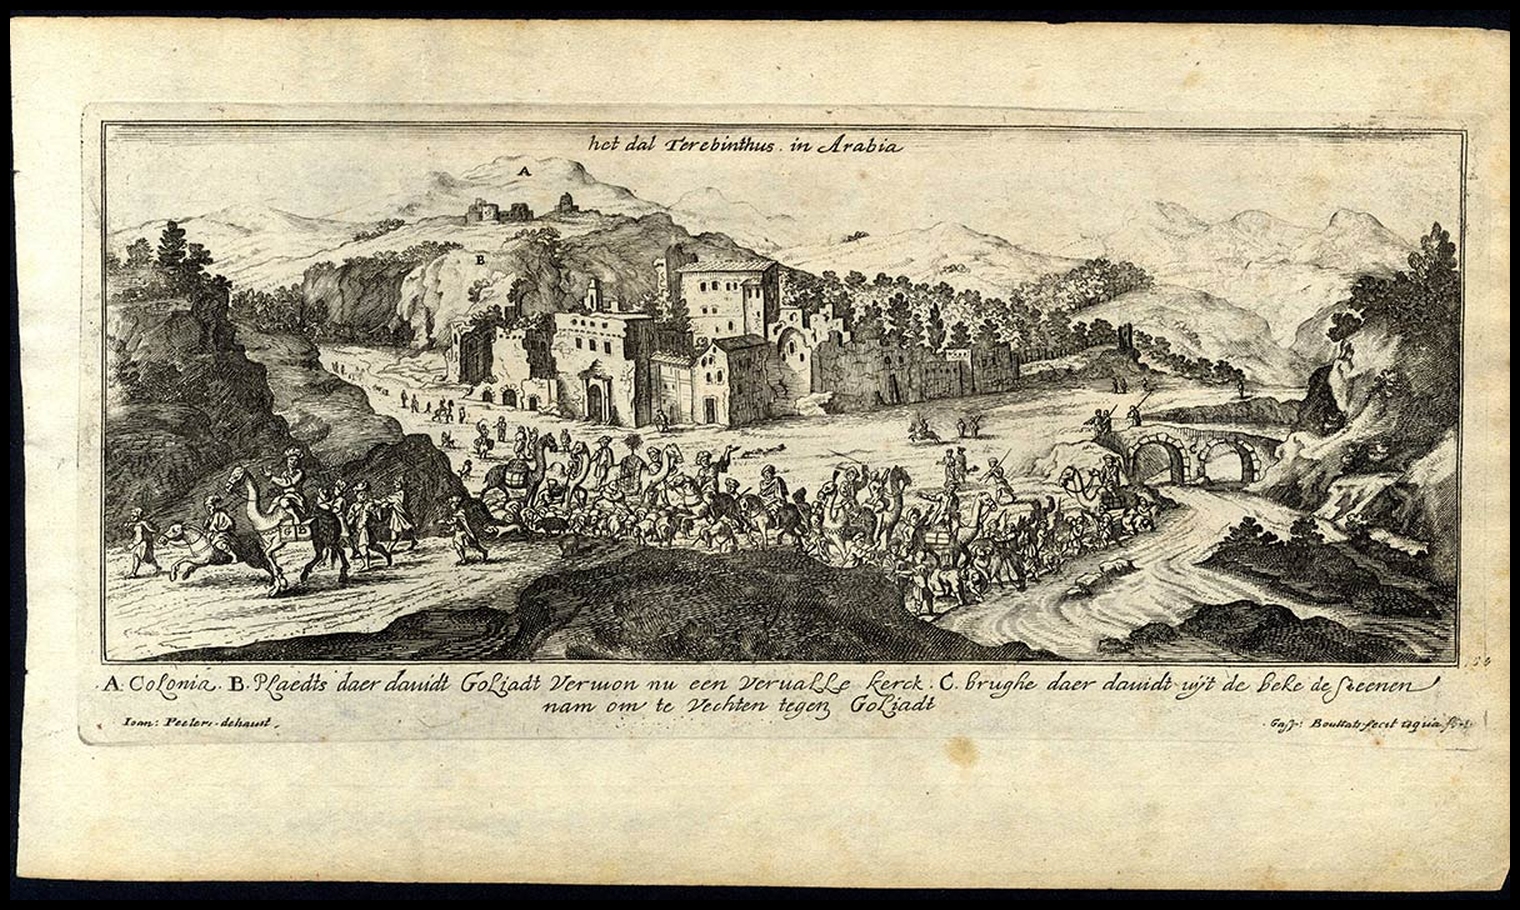 het dal Terebinthus. in Arabia
A
B
A. Colonia. B. Plaedts daer dauidt Goliadt Verwon nu een Vervalle kerck. C. brughe daer dauidt uÿt de beke de steenen
nam om te Vechten tegen Goliadt
Ioan: Peeters. delraut.
Gasp: Bouttats fecit aqua